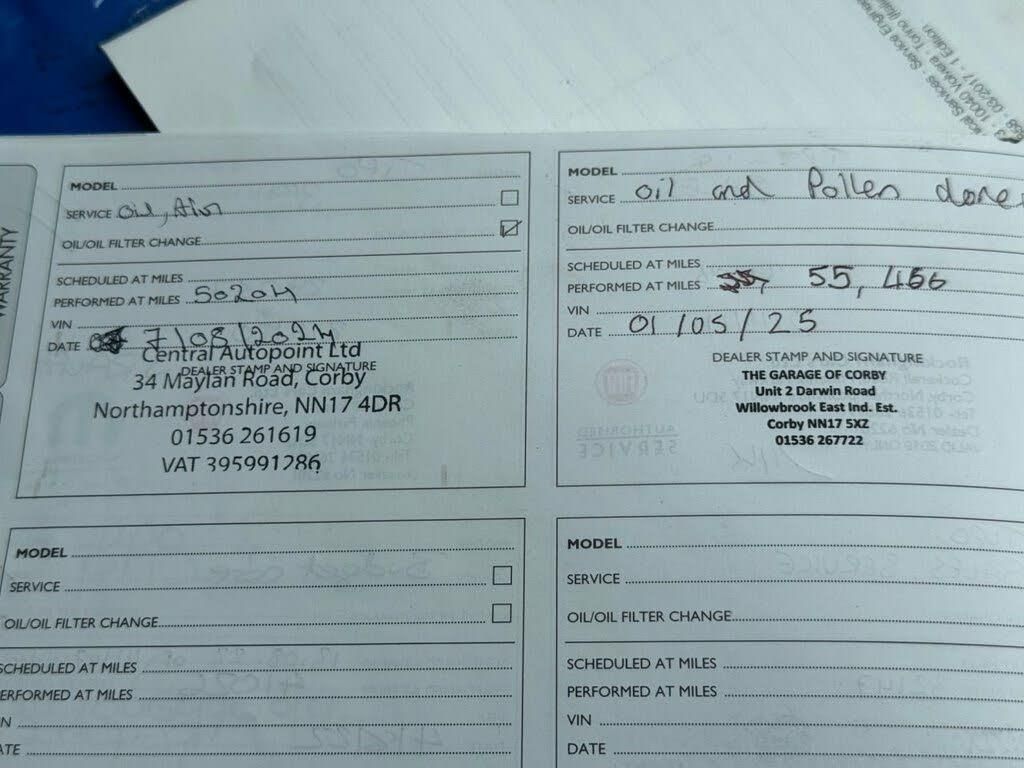 ical Services - Service Engineering
10040 Volvera - Torino (Italia)
03/2017 - 1 Edition
WARRANTY
MODEL
SERVICE Oil, Air
OIL/OIL FILTER CHANGE
SCHEDULED AT MILES
PERFORMED AT MILES 50204
VIN
DATE 7/08/2024
Central Autopoint Ltd
DEALER STAMP AND SIGNATURE
34 Maylan Road, Corby
Northamptonshire, NN17 4DR
01536 261619
VAT 395991286
MODEL
SERVICE oil and Pollen done
OIL/OIL FILTER CHANGE
SCHEDULED AT MILES
PERFORMED AT MILES 55, 466
VIN
DATE 01/05/25
DEALER STAMP AND SIGNATURE
THE GARAGE OF CORBY
Unit 2 Darwin Road
Willowbrook East Ind. Est.
Corby NN17 5XZ
01536 267722
MODEL
SERVICE
OIL/OIL FILTER CHANGE
SCHEDULED AT MILES
PERFORMED AT MILES
VIN
DATE
MODEL
SERVICE
OIL/OIL FILTER CHANGE
SCHEDULED AT MILES
PERFORMED AT MILES
VIN
DATE